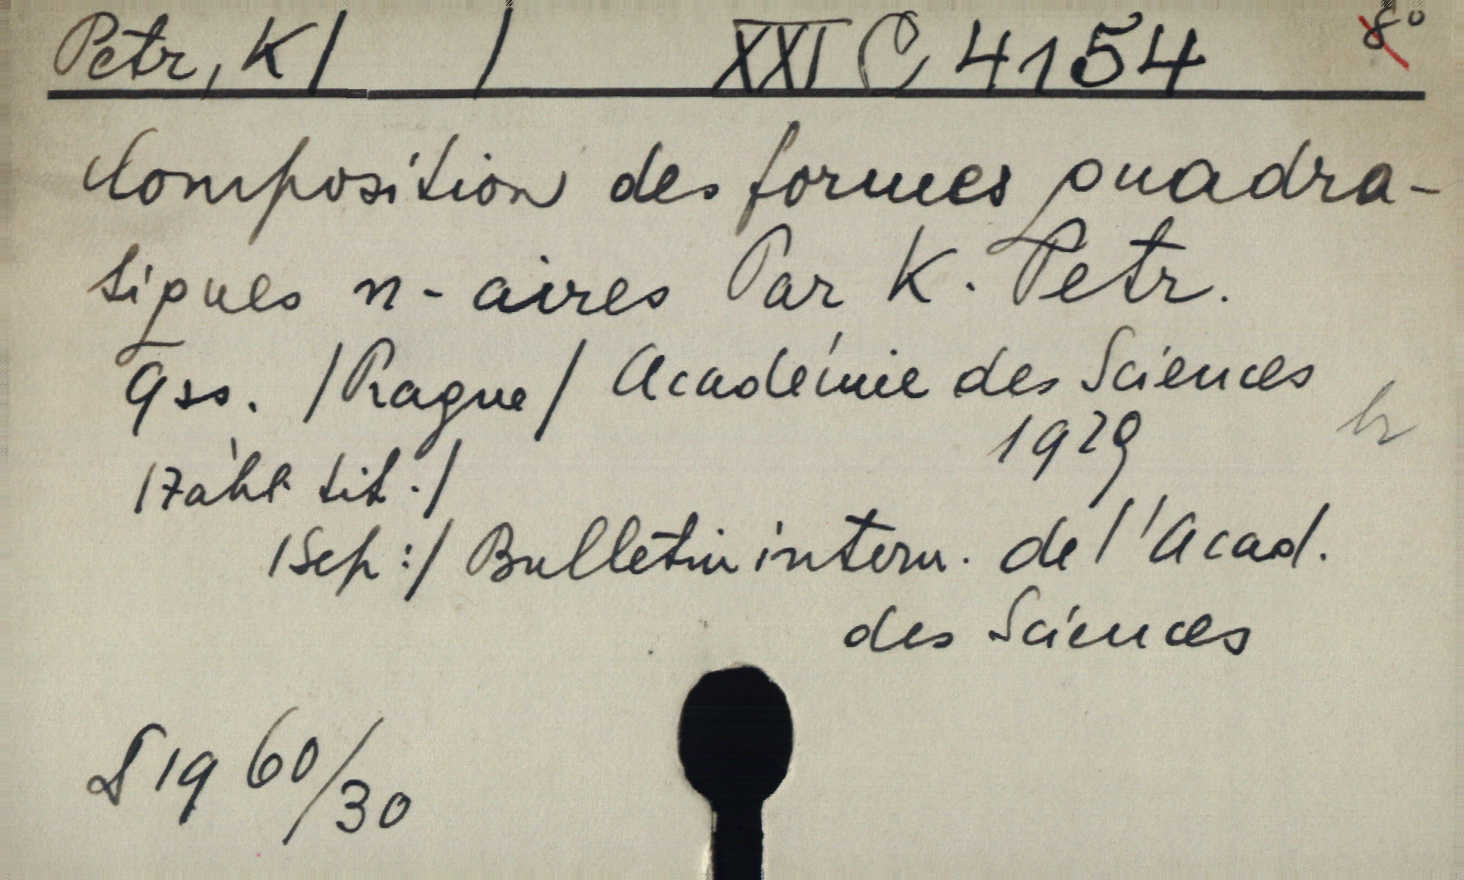 Petr, K/ / XXI C 4154 8°
Composition des formes quadra-
tiques n-aires Par K. Petr.
9 ss. /Prague/ Académie des Sciences
1929
/Záhl. tit./
/Sep:/ Bulletin intern. de l'Acad.
des Sciences
S 19 60/30